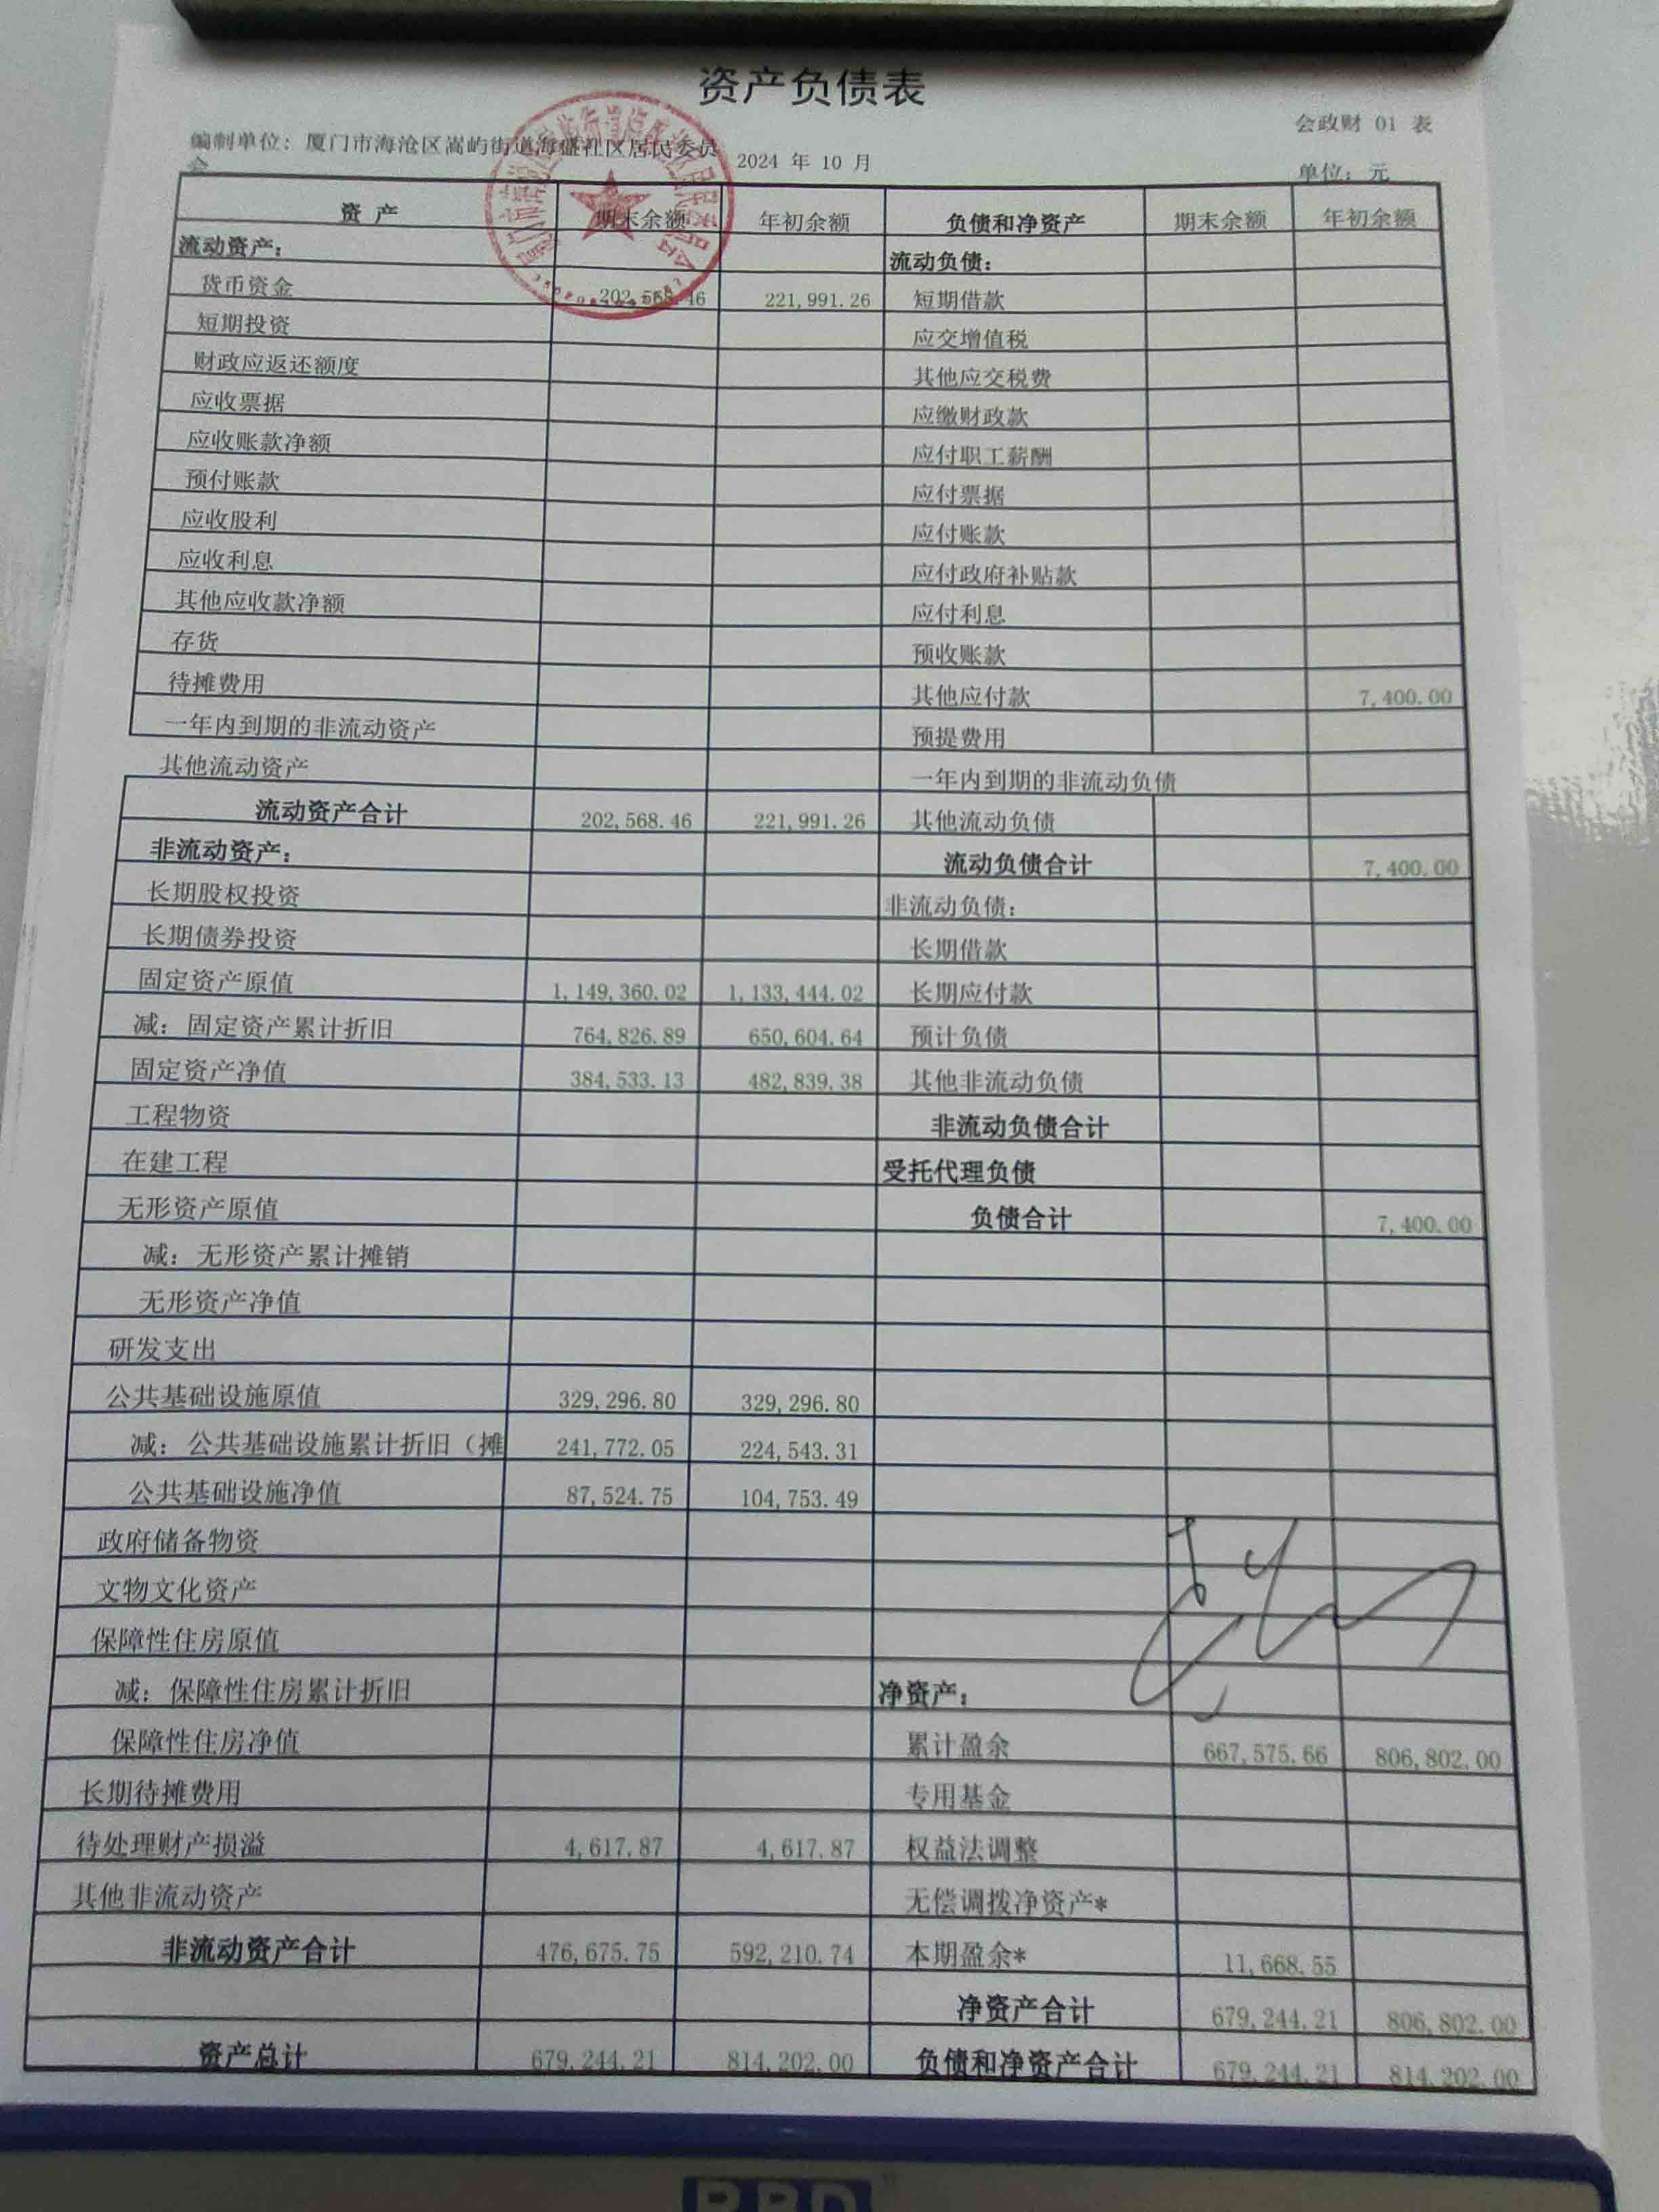 资产负债表
会政财 01 表
编制单位：厦门市海沧区嵩屿街道海盛社区居民委员会 2024 年 10 月 单位：元
资 产 期末余额 年初余额 负债和净资产 期末余额 年初余额
流动资产： 流动负债：
货币资金 202,568.46 221,991.26 短期借款
短期投资 应交增值税
财政应返还额度 其他应交税费
应收票据 应缴财政款
应收账款净额 应付职工薪酬
预付账款 应付票据
应收股利 应付账款
应收利息 应付政府补贴款
其他应收款净额 应付利息
存货 预收账款
待摊费用 其他应付款 7,400.00
一年内到期的非流动资产 预提费用
其他流动资产 一年内到期的非流动负债
流动资产合计 202,568.46 221,991.26 其他流动负债
非流动资产： 流动负债合计 7,400.00
长期股权投资 非流动负债：
长期债券投资 长期借款
固定资产原值 1,149,360.02 1,133,444.02 长期应付款
减：固定资产累计折旧 764,826.89 650,604.64 预计负债
固定资产净值 384,533.13 482,839.38 其他非流动负债
工程物资 非流动负债合计
在建工程 受托代理负债
无形资产原值 负债合计 7,400.00
减：无形资产累计摊销
无形资产净值
研发支出
公共基础设施原值 329,296.80 329,296.80
减：公共基础设施累计折旧（摊 241,772.05 224,543.31
公共基础设施净值 87,524.75 104,753.49
政府储备物资
文物文化资产
保障性住房原值
减：保障性住房累计折旧 净资产：
保障性住房净值 累计盈余 667,575.66 806,802.00
长期待摊费用 专用基金
待处理财产损溢 4,617.87 4,617.87 权益法调整
其他非流动资产 无偿调拨净资产*
非流动资产合计 476,675.75 592,210.74 本期盈余* 11,668.55
净资产合计 679,244.21 806,802.00
资产总计 679,244.21 814,202.00 负债和净资产合计 679,244.21 814,202.00